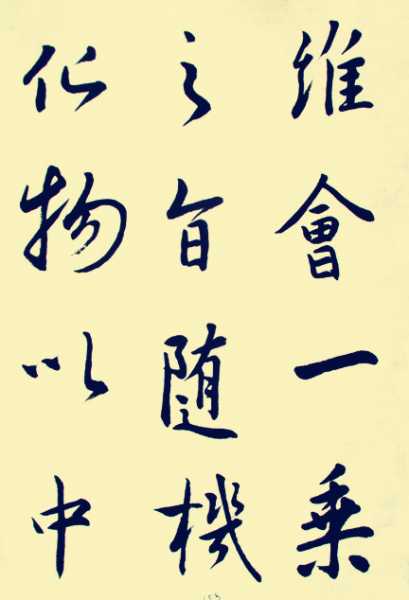 維會一乘
之旨随機
化物以中